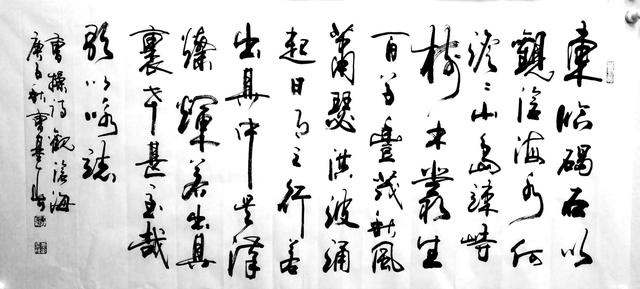 東临碣石以
觀滄海水何
澹〻山島竦峙
樹木叢生
百草豊茂秋風
蕭瑟洪波涌
起日月之行若
出其中星漢
燦爛若出其
裏幸甚至哉
歌以咏誌
曹操詩觀滄海
庚子秋